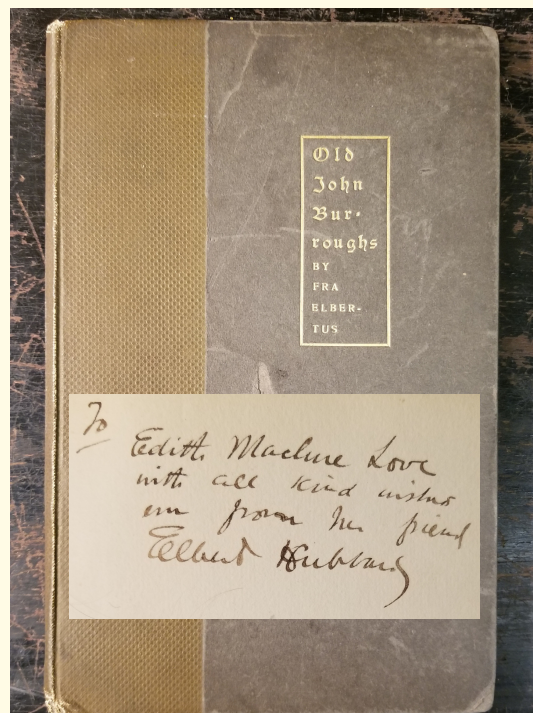 Old
John
Bur-
roughs
BY
FRA
ELBER-
TUS
To
Edith Maclure Love
with all kind wishes
ever from her friend
Elbert Hubbard